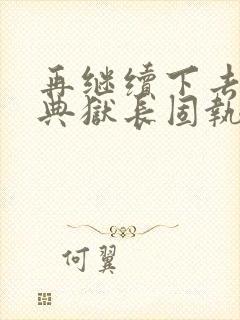 再继续下去
典獄长固執
何翼